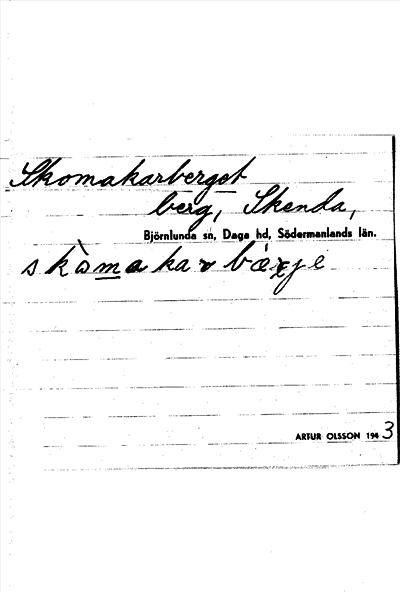 Skomakarberget
berg, Skenda,
Björnlunda sn, Daga hd, Södermanlands län.
skòmakarbǽrje
ARTUR OLSSON 1943